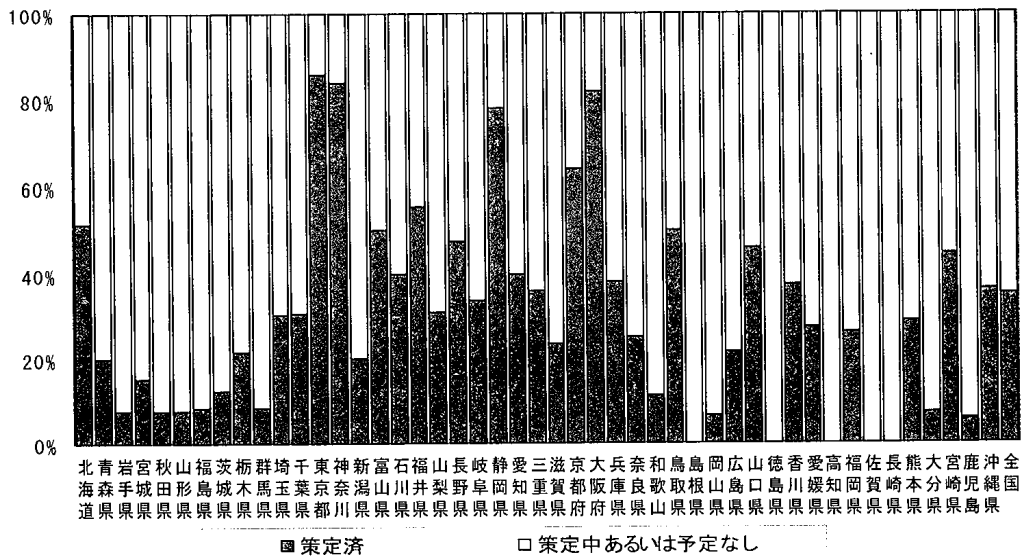 100%
80%
60%
40%
20%
0%
北海道
青森県
岩手県
宮城県
秋田県
山形県
福島県
茨城県
栃木県
群馬県
埼玉県
千葉県
東京都
神奈川
新潟県
富山県
石川県
福井県
山梨県
長野県
岐阜県
静岡県
愛知県
三重県
滋賀県
京都府
大阪府
兵庫県
奈良県
和歌山
鳥取県
島根県
岡山県
広島県
山口県
徳島県
香川県
愛媛県
高知県
福岡県
佐賀県
長崎県
熊本県
大分県
宮崎県
鹿児島
沖縄県
全国
策定済
策定中あるいは予定なし